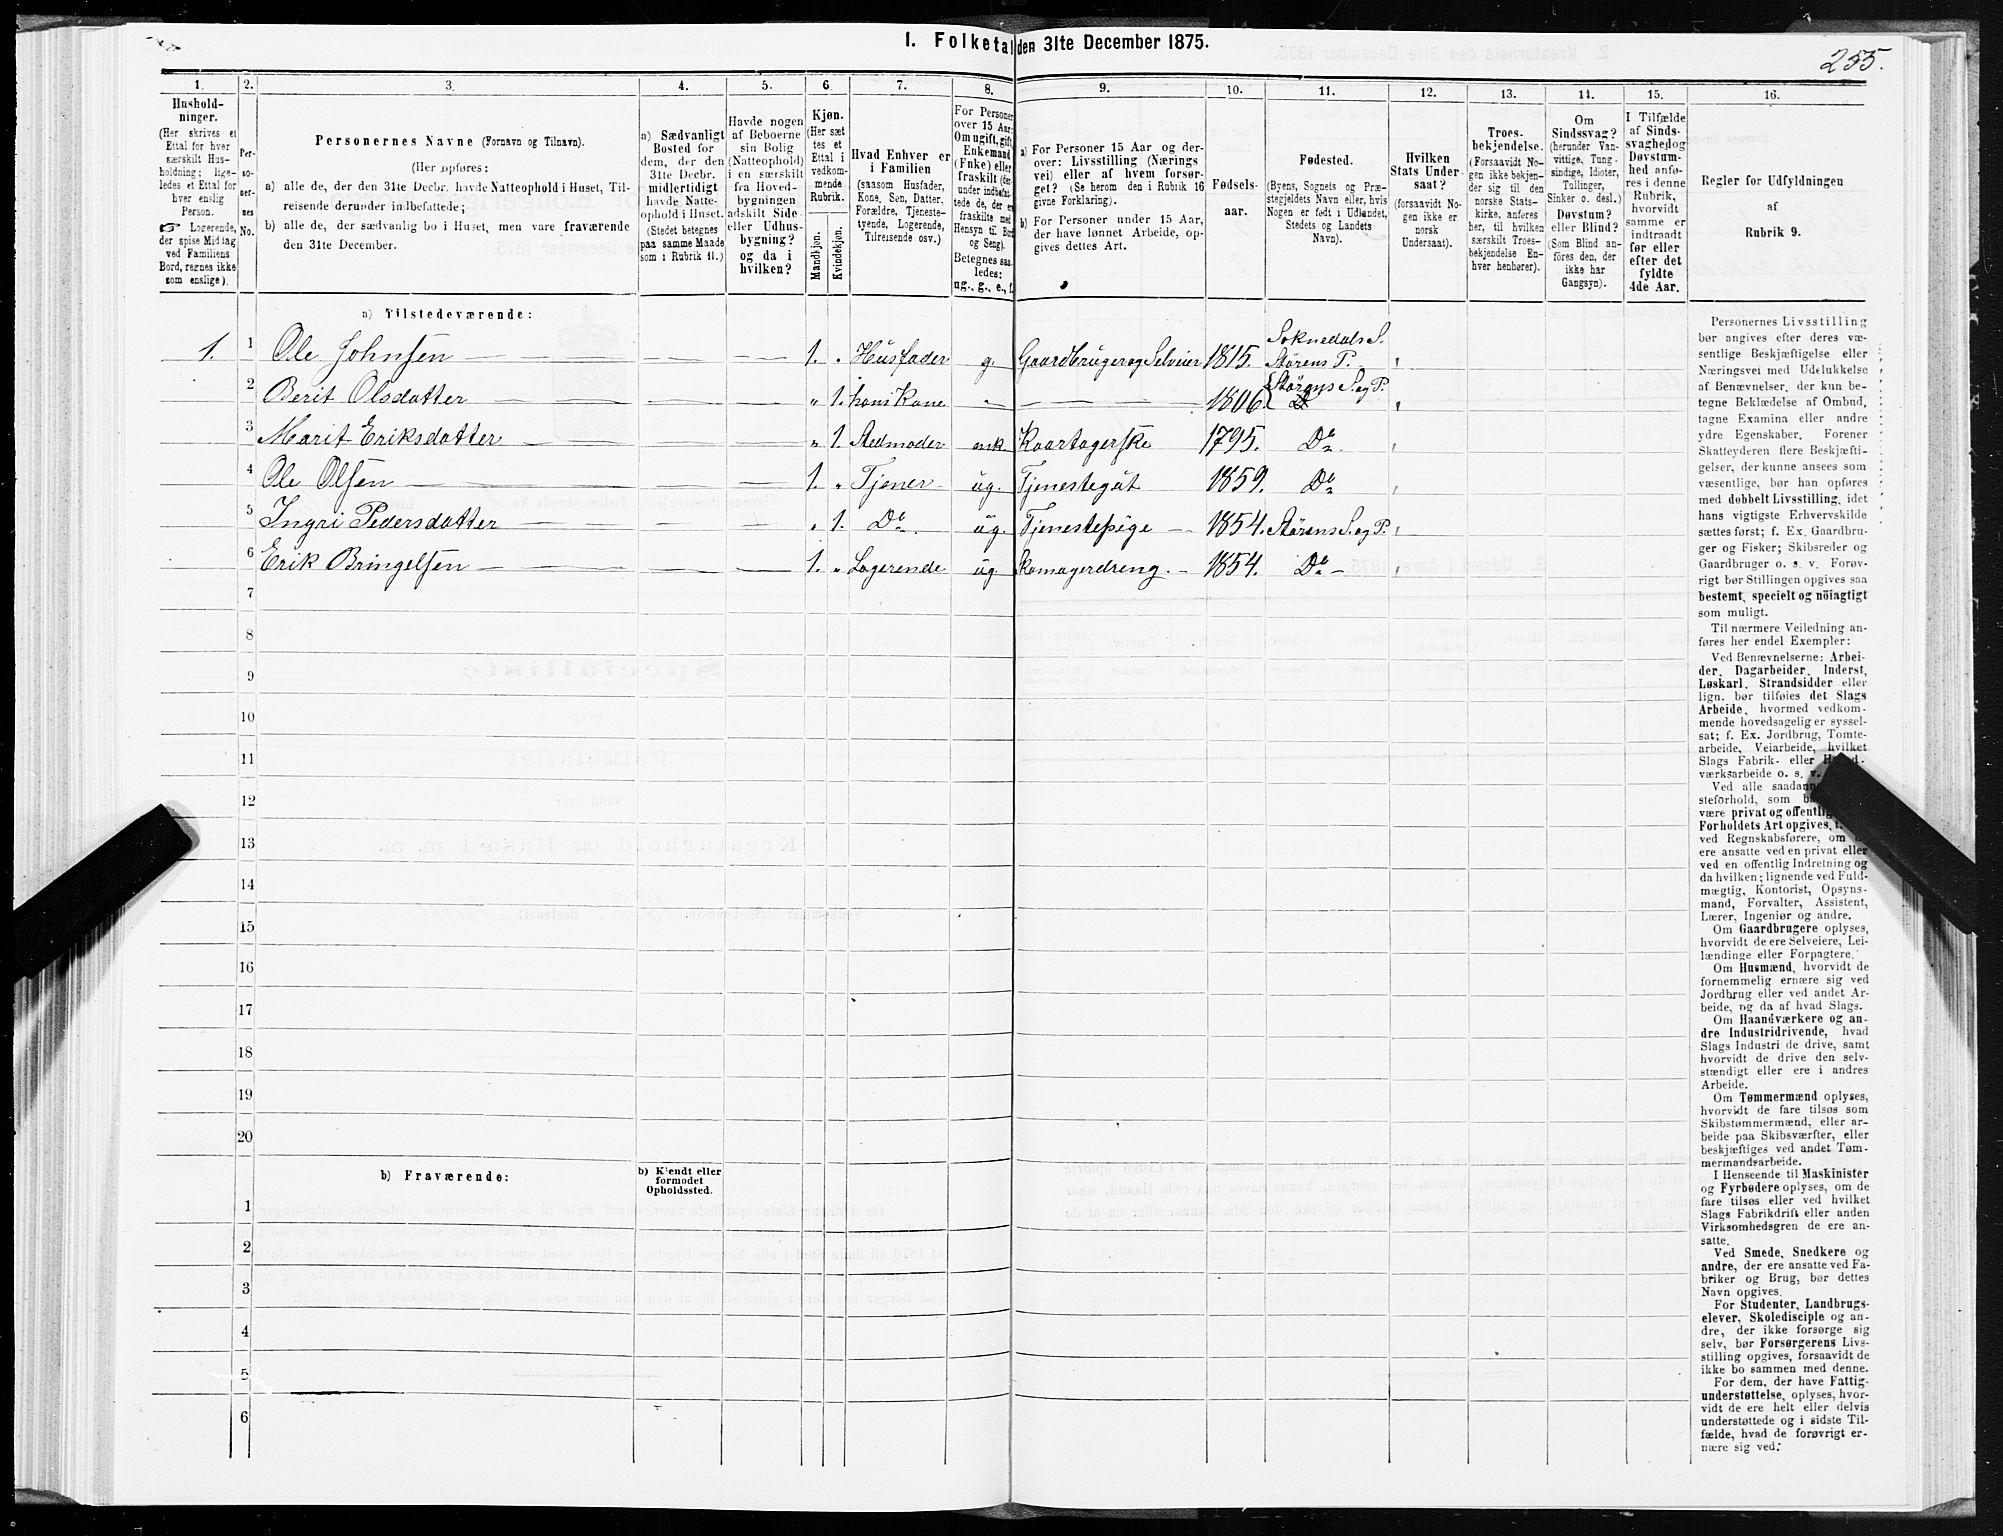 1. Folketal den 31te December 1875.
255.
1.
2.
3.
4.
5.
6.
7.
8.
9.
10.
11.
12.
13.
14.
15.
16.
Hushold-
ninger.
(Her skrives et
Ettal for hver
særskilt Hus-
holdning; lige-
ledes et Ettal for
hver enslig
Person.
☞ Logerende,
der spise Middag
ved Familiens
Bord, regnes ikke
som enslige).
Per-
so-
ner-
nes
No.
Personernes Navne (Fornavn og Tilnavn).
(Her opføres:
a) alle de, der den 31te Decbr. havde Natteophold i Huset, Til-
reisende derunder indbefattede;
b) alle de, der sædvanlig bo i Huset, men vare fraværende
den 31te December.
a) Sædvanligt
Bosted for
dem, der den
31te Decbr.
midlertidigt
havde Natte-
ophold i Huset.
(Stedet betegnes
paa samme Maade
som i Rubrik 11.)
Havde nogen
af Beboerne
sin Bolig
(Natteophold)
i en særskilt
fra Hoved-
bygningen
adskilt Side-
eller Udhus-
bygning?
og da i
hvilken?
Kjøn.
(Her sæt-
tes et
Ettal i
vedkom-
mende
Rubrik.
Mandkjøn.
Kvindekjøn.
Hvad Enhver er
i Familien
(saasom Husfader,
Kone, Søn, Datter,
Forældre, Tjeneste-
tyende, Logerende,
Tilreisende osv.)
For Personer
over 15 Aar:
Om ugift, gift,
Enkemand
(Enke) eller
fraskilt (der-
under indbefat-
tede de, der er
fraskilte med
Hensyn til Bord
og Seng).
Betegnes saa-
ledes:
ug., g., e., f.
a) For Personer 15 Aar og der-
over: Livsstilling (Nærings-
vei) eller af hvem forsør-
get? (Se herom den i Rubrik 16
givne Forklaring).
b) For Personer under 15 Aar,
der have lønnet Arbeide, op-
gives dettes Art.
Fødsels-
aar.
Fødested.
(Byens, Sognets og Præ-
stegjeldets Navn eller, hvis
Nogen er født i Udlandet,
Stedets og Landets
Navn).
Hvilken
Stats Under-
saat?
(forsaavidt No-
gen ikke er
norsk
Undersaat).
Troes-
bekjendelse.
(Forsaavidt No-
gen ikke bekjen-
der sig til den
norske Stats-
kirke, anføres
her, til hvilken
særskilt Troes-
bekjendelse En-
hver henhører).
Om
Sindssvag?
(herunder Van-
vittige, Tung-
sindige, Idioter,
Tullinger,
Sinker o. desl.)
Døvstum?
eller Blind?
(Som Blind an-
føres den, der
ikke har
Gangsyn).
I Tilfælde
af Sinds-
svaghed og
Døvstum-
hed anfø-
res i denne
Rubrik,
hvorvidt
samme er
indtraadt
før eller
efter det
fyldte
4de Aar.
Regler for Udfyldningen
af
Rubrik 9.
a) Tilstedeværende:
1. 1 Ole Johnsen 1. „ Husfader g. Gaardbruger og Selveier 1815. Soknedals S.
Størens P.
2 Berit Olsdatter „ 1. hans Kone „ 1806. Størens S. og P.
3 Marit Eriksdatter „ 1. Stedmoder enk. Kaartagerske 1795. Do
4 Ole Olsen 1. „ Tjener ug. Tjenestegut 1859. Do
5 Ingri Pedersdatter „ 1. Do ug. Tjenestepige 1854. Størens S. og P.
6 Erik Bringelsen 1. „ Logerende ug. Skomagerdreng. 1854. Do
7
8
9
10
11
12
13
14
15
16
17
18
19
20
b) Fraværende:
b) Kjendt eller
formodet
Opholdssted.
1
2
3
4
5
6
Personernes Livsstilling
bør angives efter deres væ-
sentlige Beskjæftigelse eller
Næringsvei med Udelukkelse
af Benævnelser, der kun be-
tegne Beklædelse af Ombud,
tagne Examina eller andre
ydre Egenskaber. Forener
Skatteyderen flere Beskjæfti-
gelser, der kunne ansees som
væsentlige, bør han opføres
med dobbelt Livsstilling, idet
hans vigtigste Erhvervskilde
sættes først; f. Ex. Gaardbru-
ger og Fisker; Skibsreder og
Gaardbruger o. s. v. Forøv-
rigt bør Stillingen opgives saa
bestemt, specielt og nöiagtigt
som muligt.
Til nærmere Veiledning an-
føres her endel Exempler:
Ved Benævnelserne: Arbei-
der, Dagarbeider, Inderst,
Løskarl, Strandsidder eller
lign. bør tilføies det Slags
Arbeide, hvormed vedkom-
mende hovedsagelig er syssel-
sat; f. Ex. Jordbrug, Tomte-
arbeide, Veiarbeide, hvilket
Slags Fabrik- eller Haand-
værksarbeide o. s. v.
Ved alle saadanne
steforhold, som
være privat og offentlig
Forholdets Art opgives,
ved Regnskabsførere, om
ere ansatte ved en privat eller
ved en offentlig Indretning og
da hvilken; lignende ved Fuld-
mægtig, Kontorist, Opsyns-
mand, Forvalter, Assistent,
Lærer, Ingeniør og andre.
Om Gaardbrugere oplyses,
hvorvidt de ere Selveiere, Lei-
lændinge eller Forpagtere.
Om Husmænd, hvorvidt de
fornemmelig ernære sig ved
Jordbrug eller ved andet Ar-
beide, og da af hvad Slags.
Om Haandværkere og an-
dre Industridrivende, hvad
Slags Industri de drive, samt
hvorvidt de drive den selv-
stændigt eller ere i andres
Arbeide.
Om Tømmermænd oplyses,
hvorvidt de fare tilsøs som
Skibstømmermænd, eller ar-
beide paa Skibsværfter, eller
beskjæftiges ved andet Tøm-
mermandsarbeide.
I Henseende til Maskinister
og Fyrbødere oplyses, om de
fare tilsøs eller ved hvilket
Slags Fabrikdrift eller anden
Virksomhedsgren de ere an-
satte.
Ved Smede, Snedkere og
andre, der ere ansatte ved Fa-
briker og Brug, bør dettes
Navn opgives.
For Studenter, Landbrugs-
elever, Skoledisciple og an-
dre, der ikke forsørge sig
selv, bør Forsørgerens Livs-
stilling opgives, forsaavidt de
ikke bo sammen med denne.
For dem, der have Fattig-
understøttelse, oplyses, hvor-
vidt de ere helt eller delvis
understøttede og i sidste Til-
fælde, hvad de forøvrigt er-
nære sig ved.